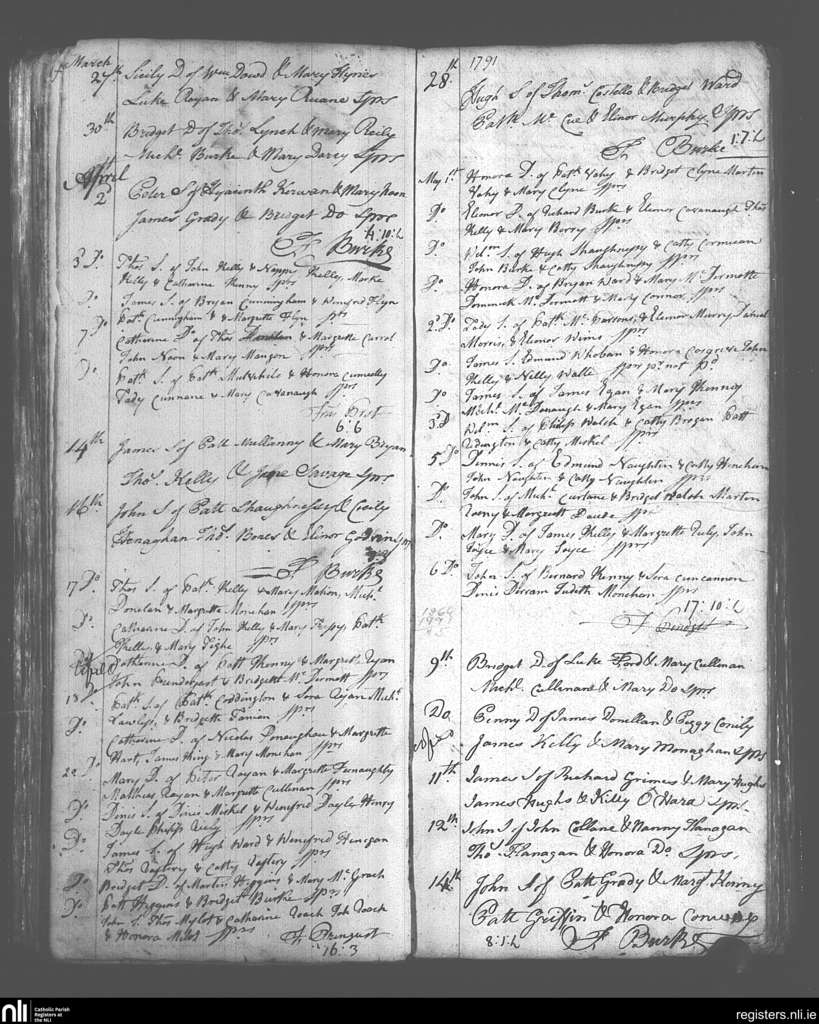 March
27th Sicily D of Wm Dowd & Mary Hynes
Luke Royan & Mary Ruane Sprs
30th Bridget D of Thos Lynch & Mary Reily
Michl Burke & Mary Darcy Sprs
April
2 Peter S of Hyacinth Kerwan & Mary Noon
James Grady & Bridget Do Sprs
4:10:½
F Burke
3 Do Thos S. of John Kelly & Nappy Kelly, Marke
Kelly & Catharine Kenny Sprs
Do James S. of Bryan Cunningham & Winefred Flyn
Patk Cunningham & Margrette Flyn Sprs
7 Do Catherine D. of Thos & Margrette Carrol
John Noon & Mary Mangan Sprs
Do Patk S. of Patk & Honora
Tady Cunnane & Mary Cavanaugh Sprs
6:6
14th James S of Patt Mullanny & Mary Bryan
Thos Kelly & Jane Savage Sprs
16th John S of Patt Shaughnessy & Cicily
Henaghan Thos & Elinor Godwin Sprs
F Burke
17 Do Thos S. of Patk Kelly & Mary Mahon, Michl
Donelan & Margrette Monehan Sprs
Do Catharine D. of John Kelly & Mary Patk
& Mary Tighe Sprs
April Catherine D. of Patt Kenny & Margrett Ryan
John Prendergast & Bridgett Mc Dermott Sprs
18 Do Patk S. of Patk Coddington & Sera Ryan Michl
Lawless, & Bridgette Sprs
Do Catherine D. of Nicolas Donaughan & Margrette
Hart, James King & Mary Monehan Sprs
22 Do Mary D. of Peter Ryan & Margrette Feenaughty
Matthias Ryan & Margrette Cullenan Sprs
Do Dinis S. of Dinis Miskel & Winefred Dayler Henry
Dayle Philip Sprs
Do James S. of Hugh Ward & Winefred Henegan
Thos & Catty Sprs
Do Bridget D. of Martin Higgins & Mary Mc Grach
Do Patt Higgins & Bridget Burke Sprs
John S. Thos Mylot & Catharine Roach Pat Roach
& Honora Sprs
F Prengust
16:3
1791
28th Hugh S of Thoms Costello & Bridget Ward
Patk Mc Cue & Elinor Murphy Sprs
F Burke 17:½
May 1st Honora D. of Patk Vahy & Bridget Clyne Martin
Vahy & Mary Clyne Sprs
Do Elenor D. of Richard Burke & Elenor Cavanaugh Thos
Kelly & Mary Berry Sprs
Do Wilm S. of Hugh Shaughnessy & Catty
John Burke & Catty Shaughnessy Sprs
Do Honora D. of Bryan Ward & Mary Mc Dermotte
Dominick Mc Dermott & Mary Connor Sprs
2d Do Tady S. of Patk Mc & Elenor Murry Daniel
Morris, & Elenor Sprs
Do James S. Edmund & Honora Cosgrive John
Kelley & Nelly Walle Sprs not pd
Do James S. of James Egan & Mary Kennoy
Michl Mc Donaugh & Mary Egan Sprs
3d Wilm S. of Philip Walsh & Catty Brogan Patt
& Catty Miskel Sprs
5 Do Dennis S. of Edmund Naughten & Catty Henehan
John Naughten & Catty Naughten Sprs
Do John S. of Michl Curlane & Bridget Walsh Martin
& Margrett Sprs
Do Mary D. of James Kelly & Margrette John
Joyce & Mary Joyce Sprs
6 Do John S. of Bernard Kenny & Sera Cuncannon
Dinis Judath Monehan Sprs
17:10:½
F
9th Bridget D. of Luke Ford & Mary Cullenan
Michl Cullenane & Mary Do Sprs
Do Penny D of James Donellan & Peggy Conily
James Kelly & Mary Monaghan Sprs
11th James S of Richard Grimes & Mary Hughs
James Hughs & Kitty O Hara Sprs
12th John S of John Collane & Nanny Flanagan
Thos Flanagan & Honora Do Sprs.
14th John S of Patt Grady & Margt Kenny
Patt Griffin & Honora Conway
8:1:½ F Burke
nli Catholic Parish
Registers at
the NLI
registers.nli.ie